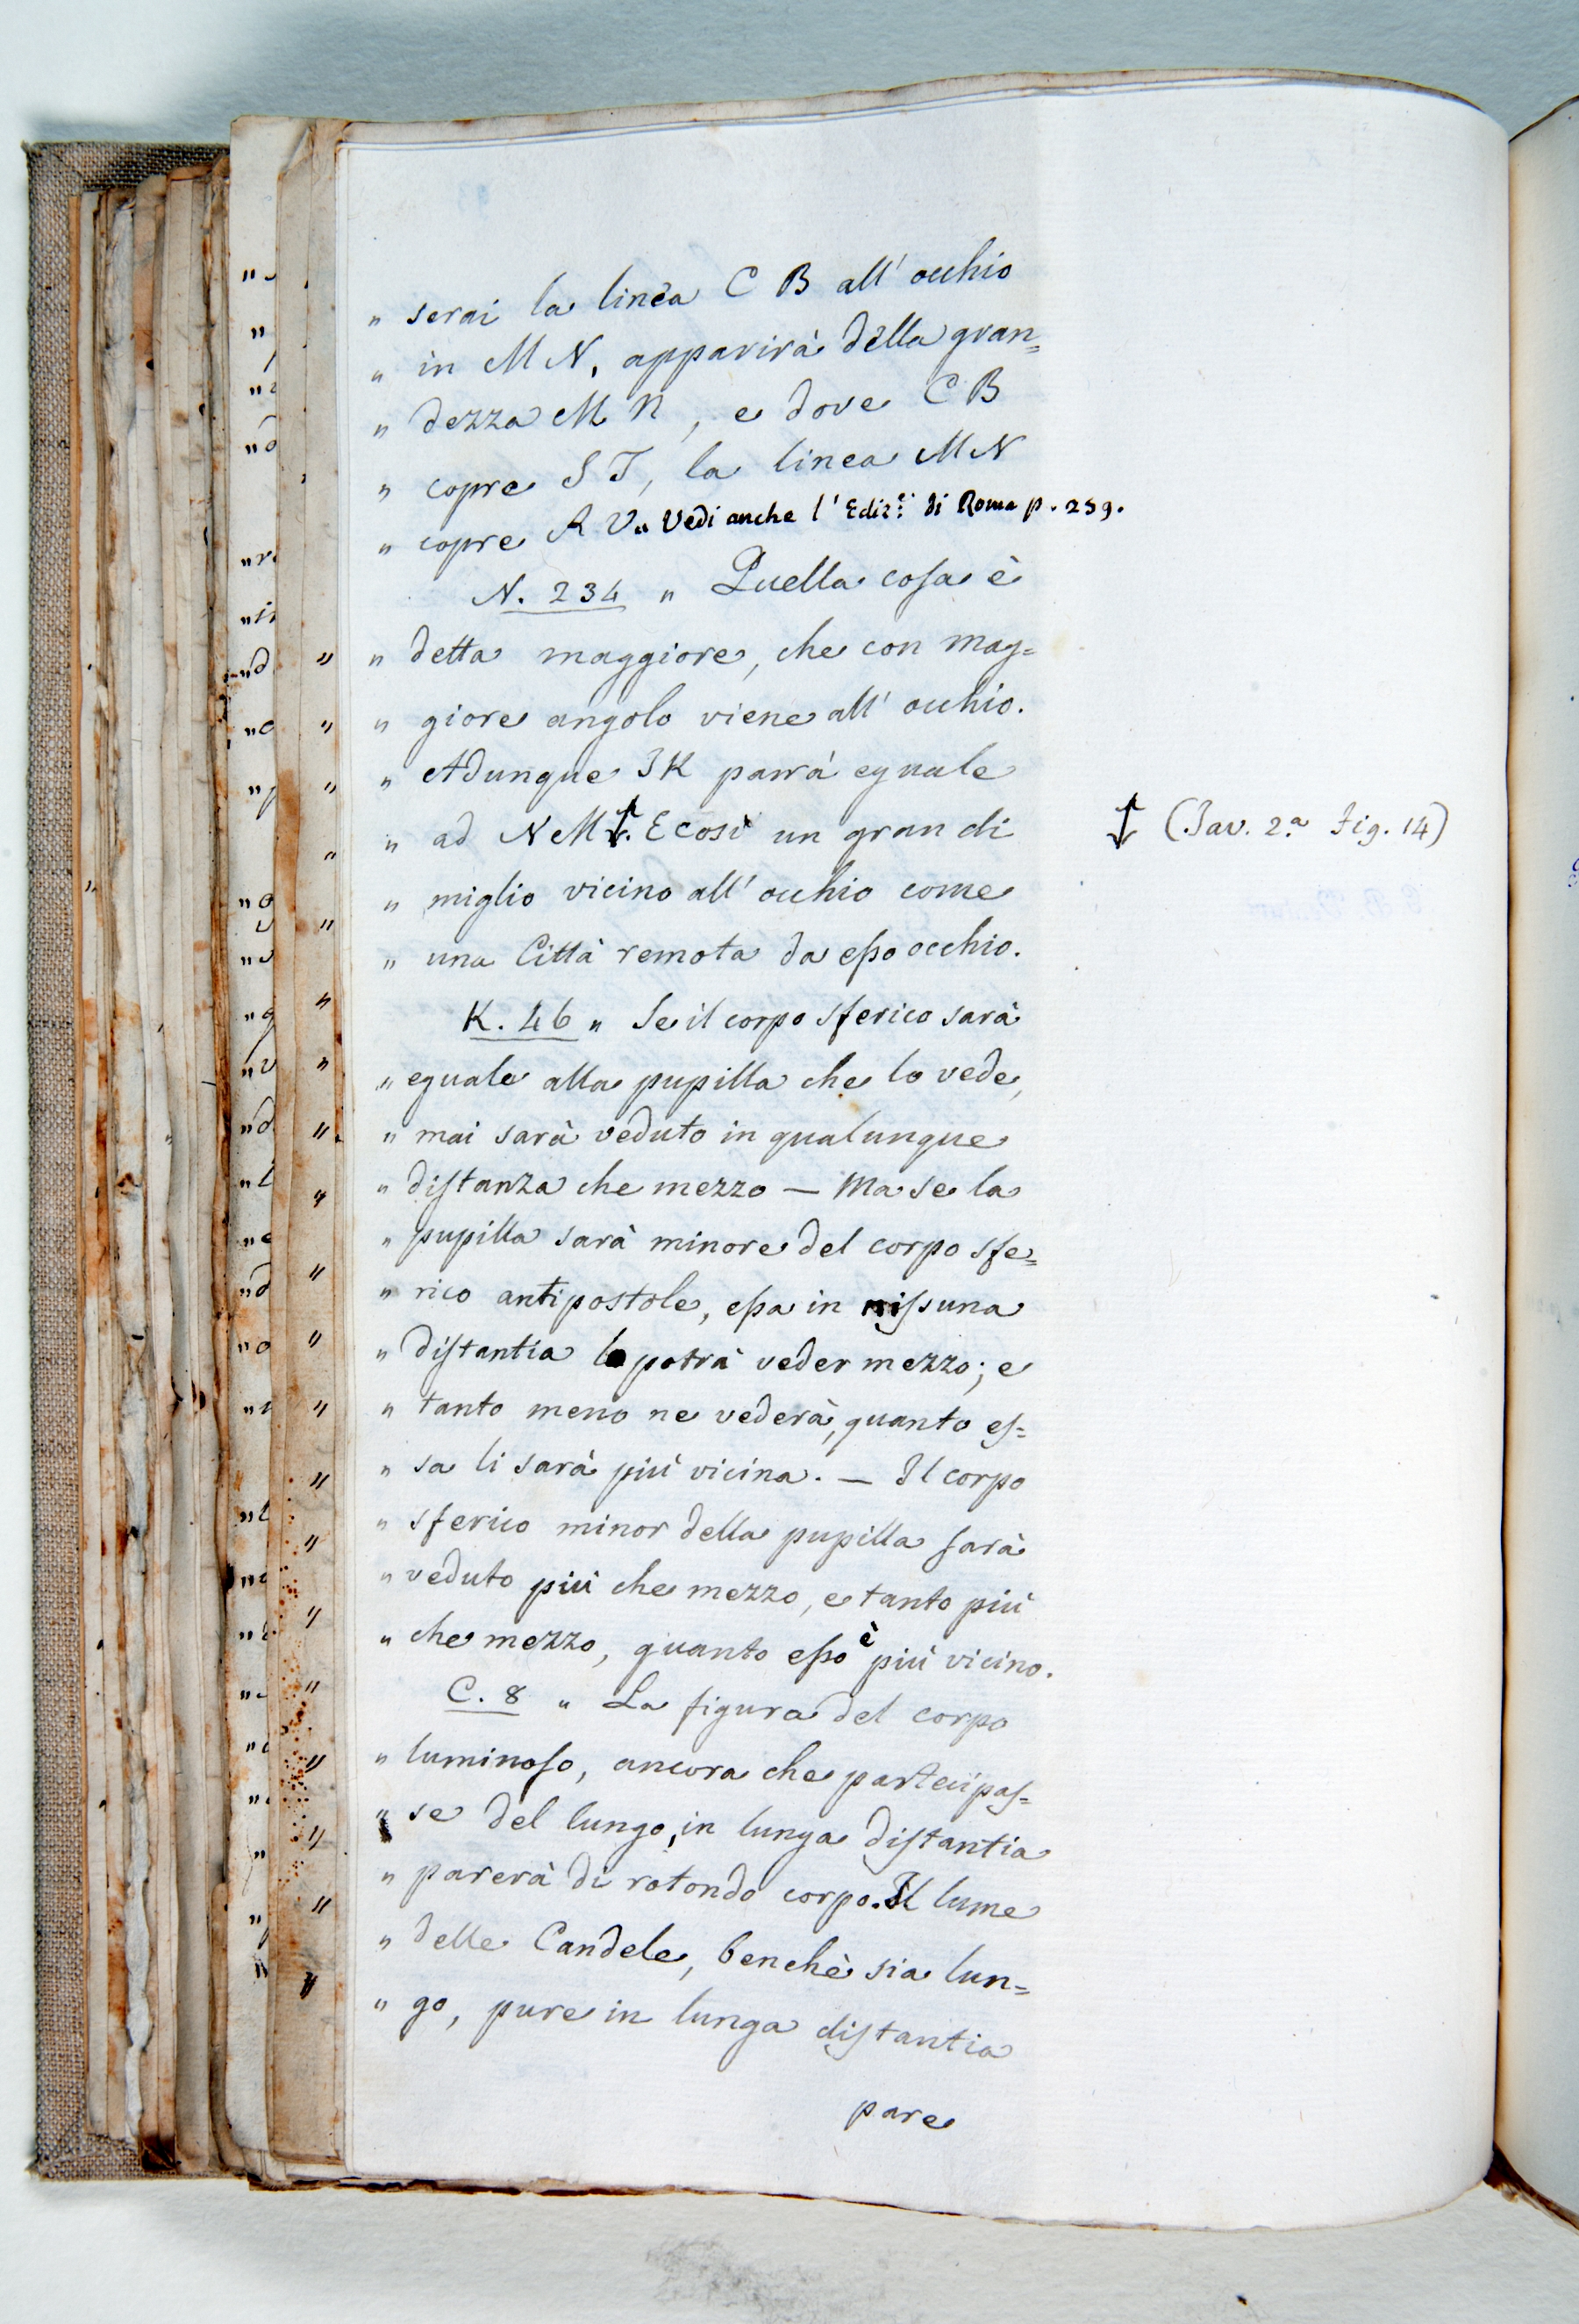 „ serai la linea C B all' occhio
„ in M N, apparirà della gran=
„ dezza M N, e dove C B
„ copre S T, la linea M N
„ copre R V „ Vedi anche l' Ediz.ⁱ di Roma p. 259.
N. 234 „ Quella cosa è
„ detta maggiore, che con mag=
„ giore angolo viene all' occhio.
„ Adunque I K parrà eguale
„ ad N M. E così un gran di
(Tav. 2.ª Fig. 14)
„ miglio vicino all' occhio come
„ una Città remota da eſso occhio.
K. 46 „ Se il corpo sferico sarà
„ eguale alla pupilla che lo vede,
„ mai sarà veduto in qualunque
„ diſtanza che mezzo — Ma se la
„ pupilla sarà minore del corpo sfe=
„ rico antipostole, eſsa in niſsuna
„ diſtantia lo potrà veder mezzo; e
„ tanto meno ne vederà, quanto eſ=
„ sa li sarà più vicina. — Il corpo
„ sferico minor della pupilla ſarà
„ veduto più che mezzo, e tanto più
„ che mezzo, quanto eſso è più vicino.
C. 8 „ La figura del corpo
„ luminoſo, ancora che partecipaſ=
„ se del lungo, in lunga diſtantia
„ parerà di rotondo corpo. Il lume
„ delle Candele, benchè sia lun=
„ go, pure in lunga diſtantia
pare